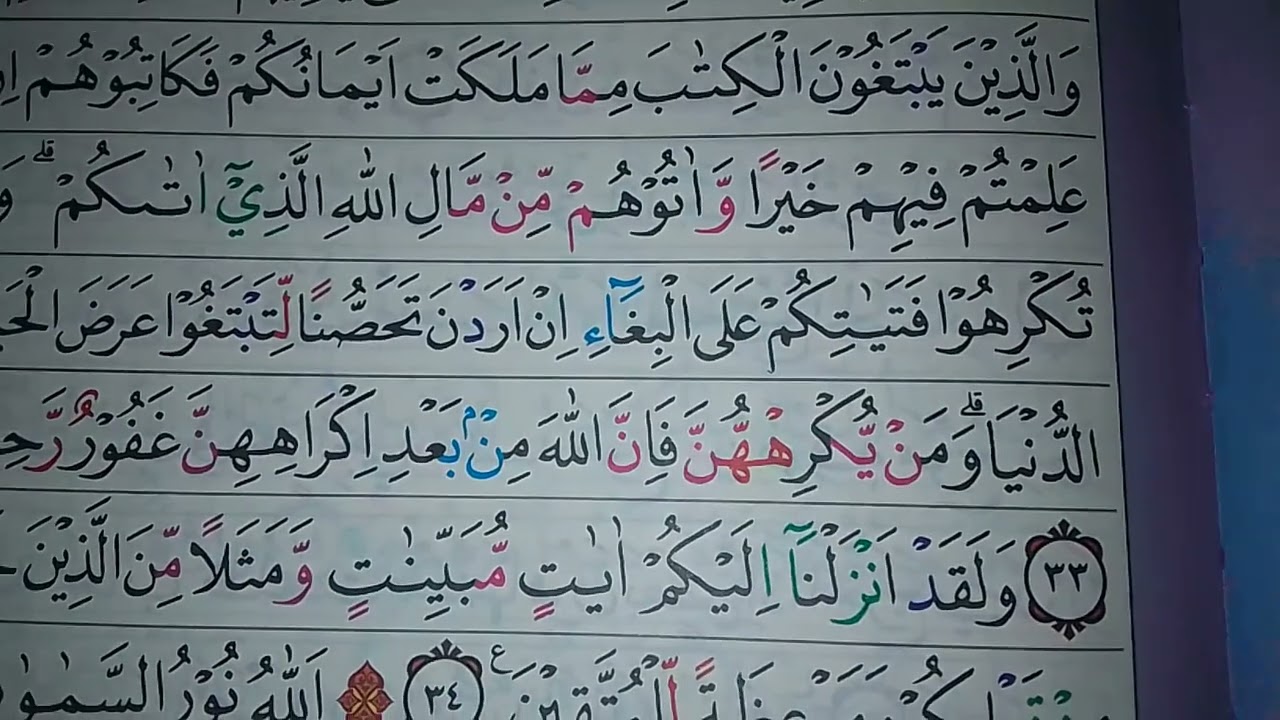 وَالَّذِيْنَ يَبْتَغُوْنَ الْكِتٰبَ مِمَّا مَلَكَتْ اَيْمَانُكُمْ فَكَاتِبُوْهُمْ اِ
عَلِمْتُمْ فِيْهِمْ خَيْرًا وَّاٰتُوْهُمْ مِّنْ مَّالِ اللّٰهِ الَّذِيْٓ اٰتٰىكُمْ ۗ وَ
تُكْرِهُوْا فَتَيٰتِكُمْ عَلَى الْبِغَاۤءِ اِنْ اَرَدْنَ تَحَصُّنًا لِّتَبْتَغُوْا عَرَضَ الْحَ
الدُّنْيَا ۗوَمَنْ يُّكْرِهْهُّنَّ فَاِنَّ اللّٰهَ مِنْۢ بَعْدِ اِكْرَاهِهِنَّ غَفُوْرٌ رَّحِ
٣٣ وَلَقَدْ اَنْزَلْنَآ اِلَيْكُمْ اٰيٰتٍ مُّبَيِّنٰتٍ وَّمَثَلًا مِّنَ الَّذِيْنَ
لِّلْمُتَّقِيْنَ ࣖ ٣٤ اَللّٰهُ نُوْرُ السَّمٰوٰ